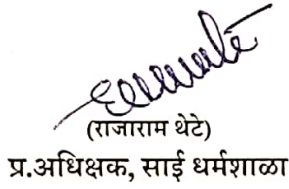 (राजाराम थेटे)
प्र.अधिक्षक, साई धर्मशाळा